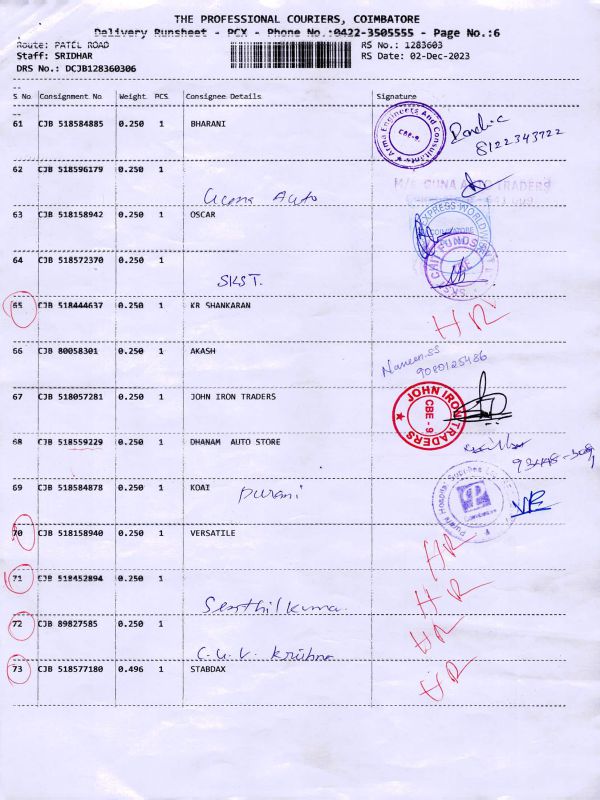 THE PROFESSIONAL COURIERS, COIMBATORE
Delivery Runsheet - PCX - Phone No.:0422-3505555 - Page No.:6
Route: PATEL ROAD RS No.: 1283603
Staff: SRIDHAR RS Date: 02-Dec-2023
DRS No.: DCJB128360306
S No Consignment No Weight PCS Consignee Details Signature
61 CJB 518584885 0.250 1 BHARANI
8122343722
62 CJB 518596179 0.250 1
Guna Auto
M/s GUNA AUTO TRADERS
63 CJB 518158942 0.250 1 OSCAR
EXPRESS WORLDWIDE
COIMBATORE
64 CJB 518572370 0.250 1
SKS T.
SKS CHIT FUNDS
65 CJB 518444637 0.250 1 KR SHANKARAN
HR
66 CJB 80058301 0.250 1 AKASH
Naveen.SS
9080125486
67 CJB 518057281 0.250 1 JOHN IRON TRADERS
JOHN IRON TRADERS
CBE - 9
68 CJB 518559229 0.250 1 DHANAM AUTO STORE
69 CJB 518584878 0.250 1 KOAI
Purani
70 CJB 518158940 0.250 1 VERSATILE
HR
71 CJB 518452894 0.250 1
Senthilkuma
HR
72 CJB 89827585 0.250 1
C.U.V. Krishna
HR
73 CJB 518577180 0.496 1 STABDAX
HR